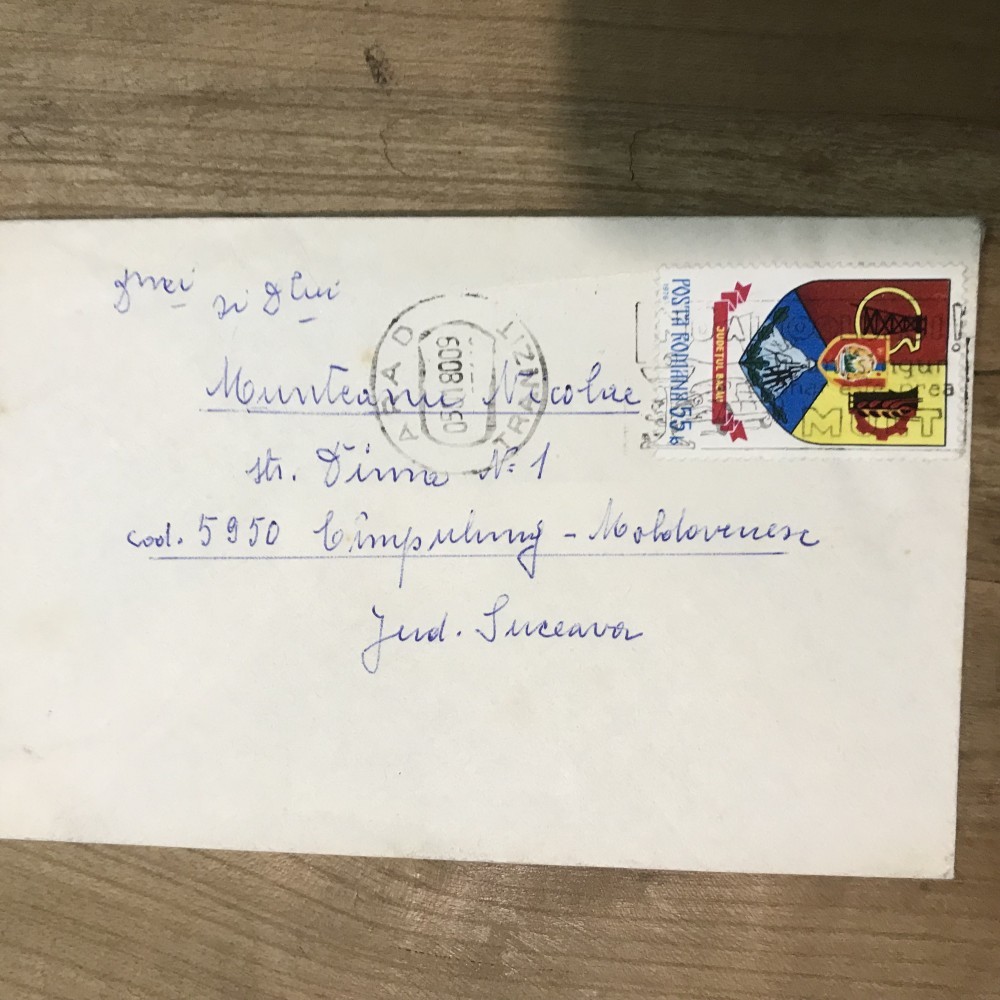 Dnei și Dlui
Munteanu Nicolae
str. Dima Nº 1
cod. 5950 Cîmpulung - Moldovenesc
Jud. Suceava
ARAD
TRANZIT
POSTA ROMANA 55 b
1976
JUDEȚUL BACĂU
MULT